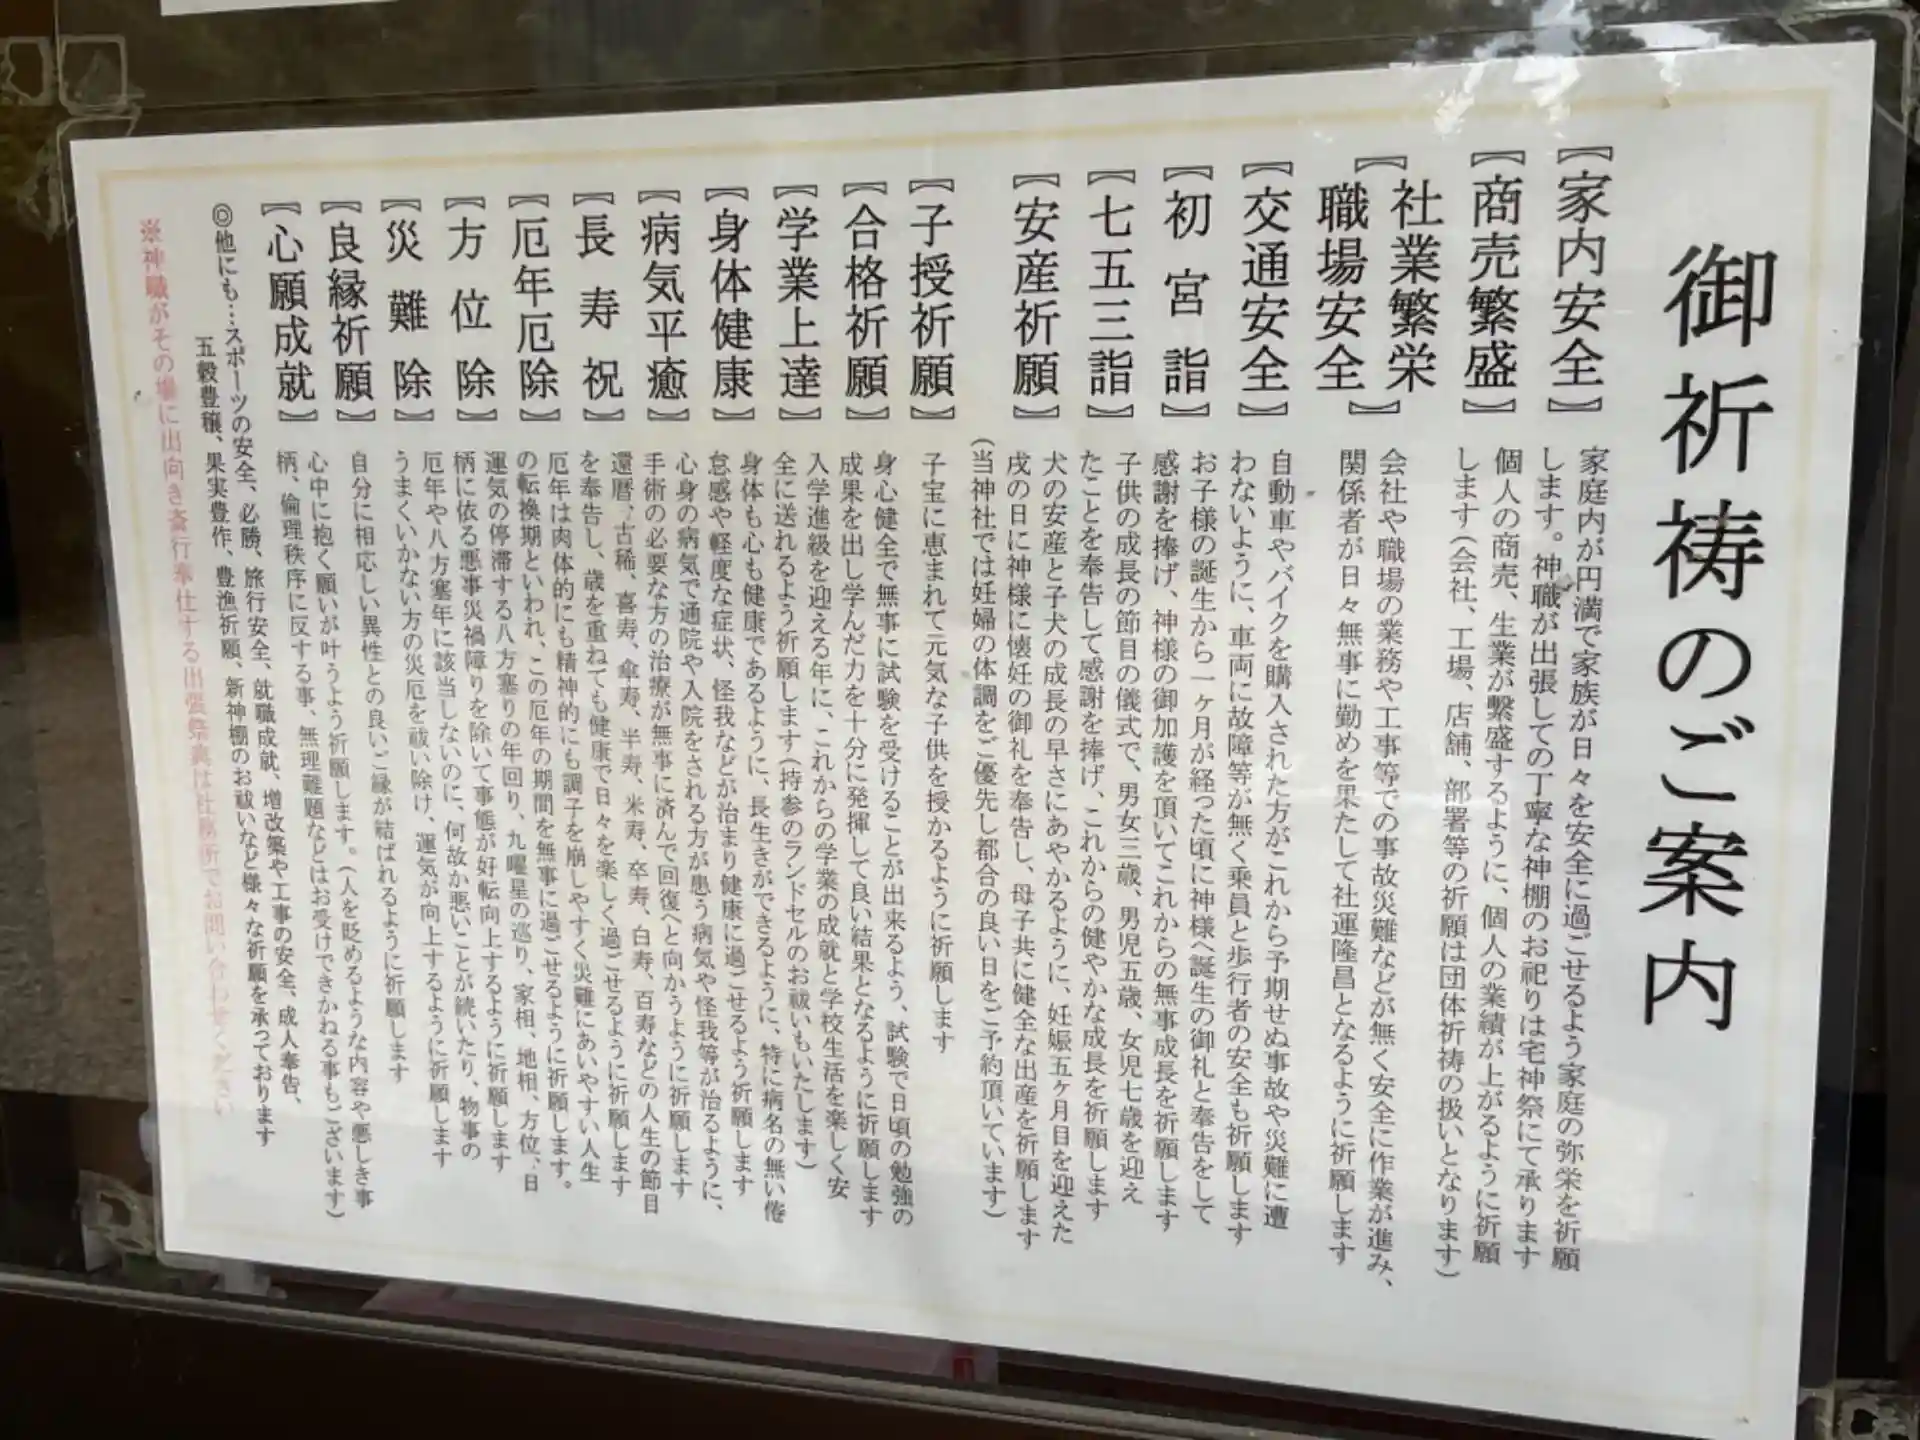 御祈祷のご案内
【家内安全】
家庭内が円満で家族が日々を安全に過ごせるよう家庭の弥栄を祈願
します。神職が出張しての丁寧な神棚のお祀りは宅神祭にて承ります
【商売繁盛】
個人の商売、生業が繋盛するように、個人の業績が上がるように祈願
します(会社、工場、店舗、部署等の祈願は団体祈祷の扱いとなります)
【社業繁栄
職場安全】
会社や職場の業務や工事等での事故災難などが無く安全に作業が進み、
関係者が日々無事に勤めを果たして社運隆昌となるように祈願します
【交通安全】
自動車やバイクを購入された方がこれから予期せぬ事故や災難に遭
わないように、車両に故障等が無く乗員と歩行者の安全も祈願します
【初宮詣】
お子様の誕生から一ヶ月が経った頃に神様へ誕生の御礼と奉告をして
感謝を捧げ、神様の御加護を頂いてこれからの無事成長を祈願します
【七五三詣】
子供の成長の節目の儀式で、男女三歳、男児五歳、女児七歳を迎え
たことを奉告して感謝を捧げ、これからの健やかな成長を祈願します
【安産祈願】
犬の安産と子犬の成長の早さにあやかるように、妊娠五ヶ月目を迎えた
戌の日に神様に懐妊の御礼を奉告し、母子共に健全な出産を祈願します
(当神社では妊婦の体調をご優先し都合の良い日をご予約頂いています)
【子授祈願】
子宝に恵まれて元気な子供を授かるように祈願します
【合格祈願】
身心健全で無事に試験を受けることが出来るよう、試験で日頃の勉強の
成果を出し学んだ力を十分に発揮して良い結果となるように祈願します
【学業上達】
入学進級を迎える年に、これからの学業の成就と学校生活を楽しく安
全に送れるよう祈願します(持参のランドセルのお祓いもいたします)
【身体健康】
身体も心も健康であるように、長生きができるように、特に病名の無い倦
怠感や軽度な症状、怪我などが治まり健康に過ごせるよう祈願します
【病気平癒】
心身の病気で通院や入院をされる方が患う病気や怪我等が治るように、
手術の必要な方の治療が無事に済んで回復へと向かうように祈願します
【長寿祝】
還暦、古稀、喜寿、傘寿、半寿、米寿、卒寿、白寿、百寿などの人生の節目
を奉告し、歳を重ねても健康で日々を楽しく過ごせるように祈願します
【厄年厄除】
厄年は肉体的にも精神的にも調子を崩しやすく災難にあいやすい人生
の転換期といわれ、この厄年の期間を無事に過ごせるように祈願します。
【方位除】
運気の停滞する八方塞りの年回り、九曜星の巡り、家相、地相、方位、日
柄に依る悪事災禍障りを除いて事態が好転向上するように祈願します
【災難除】
厄年や八方塞年に該当しないのに、何故か悪いことが続いたり、物事の
うまくいかない方の災厄を祓い除け、運気が向上するように祈願します
【良縁祈願】
自分に相応しい異性との良いご縁が結ばれるように祈願します
【心願成就】
心中に抱く願いが叶うよう祈願します。(人を貶めるような内容や悪しき事
柄、倫理秩序に反する事、無理難題などはお受けできかねる事もございます)
◎他にも…スポーツの安全、必勝、旅行安全、就職成就、増改築や工事の安全、成人奉告、
五穀豊穣、果実豊作、豊漁祈願、新神棚のお祓いなど様々な祈願を承っております
※神職がその場に出向き斎行奉仕する出張祭典は社務所でお問い合わせください